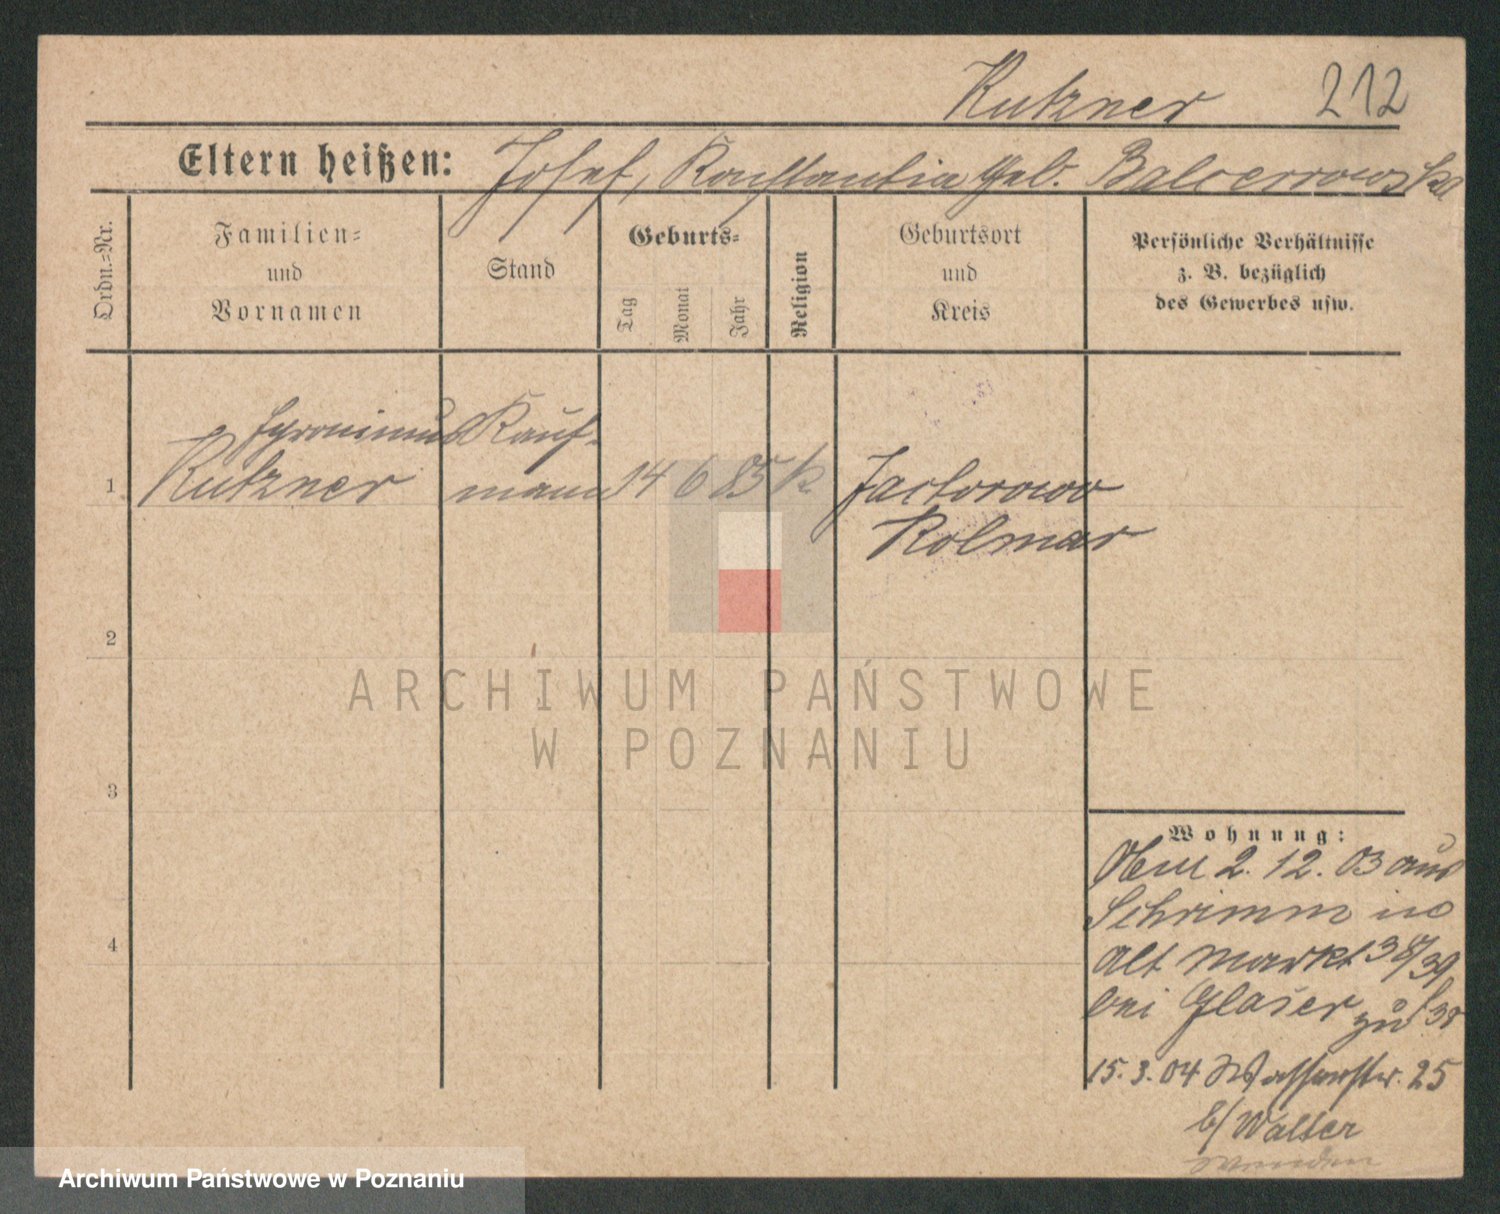 Kutzner 212
Eltern heißen: Josef, Konstantia geb. Balcerrowska
Ordn.-Nr.
Familien-
und
Vornamen
Stand
Geburts-
Tag
Monat
Jahr
Religion
Geburtsort
und
Kreis
Persönliche Verhältnisse
z. B. bezüglich
des Gewerbes usw.
Hyronimus Kauf-
1 Kutzner mann 14 6 85 k Jactorowo
Kolmar
2
ARCHIWUM PAŃSTWOWE
W POZNANIU
3
Wohnung:
2. 12. 03 aus
Schrimm in
4
Alt Markt 38/39
bei Glaser zu 38
15. 3. 04 Wasserstr. 25
b/ Walter
wenden
Archiwum Państwowe w Poznaniu